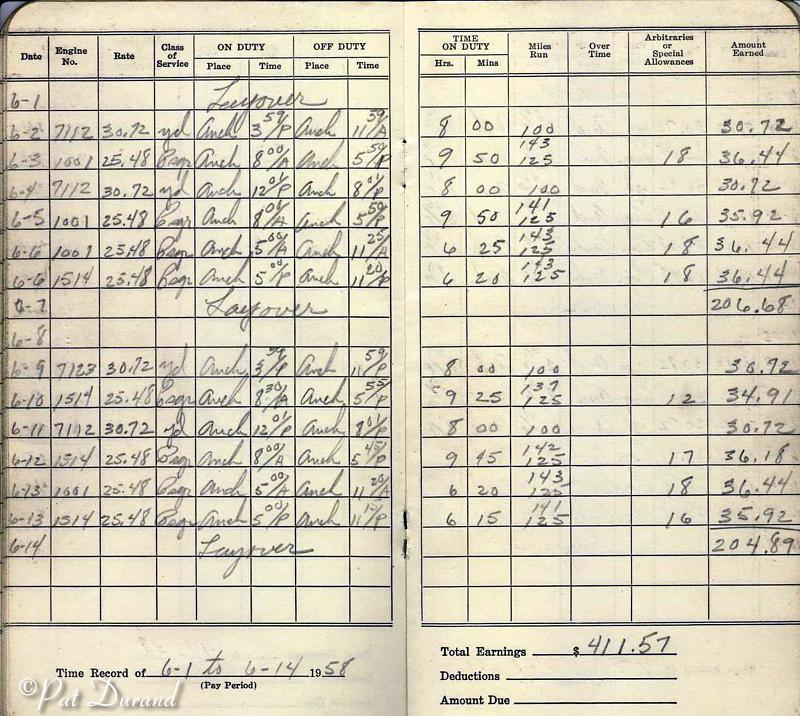 Date Engine No. Rate Class of Service ON DUTY Place Time OFF DUTY Place Time TIME ON DUTY Hrs. Mins Miles Run Over Time Arbitraries or Special Allowances Amount Earned
6-1 Layover
6-2 7112 30.72 yd Anch 3 59/P Anch 11 59/A 8 00 100 30.72
6-3 1001 25.48 Psgr Anch 8 00/A Anch 5 50/P 9 50 143 125 18 36.44
6-4 7112 30.72 yd Anch 12 01/P Anch 8 01/P 8 00 100 30.72
6-5 1001 25.48 Psgr Anch 8 00/A Anch 5 50/P 9 50 141 125 16 35.92
6-6 1001 25.48 Psgr Anch 5 00/A Anch 11 25/A 6 25 143 125 18 36.44
6-6 1514 25.48 Psgr Anch 5 00/P Anch 11 20/P 6 20 143 125 18 36.44
6-7 Layover 206.68
6-8
6-9 7123 30.72 yd Anch 3 59/P Anch 11 59/P 8 00 100 30.72
6-10 1514 25.48 Psgr Anch 8 30/A Anch 5 55/P 9 25 137 125 12 34.91
6-11 7112 30.72 yd Anch 12 01/P Anch 8 01/P 8 00 100 30.72
6-12 1514 25.48 Psgr Anch 8 00/A Anch 5 45/P 9 45 142 125 17 36.18
6-13 1001 25.48 Psgr Anch 5 00/A Anch 11 20/A 6 20 143 125 18 36.44
6-13 1514 25.48 Psgr Anch 5 00/P Anch 11 15/P 6 15 141 125 16 35.92
6-14 Layover 204.89
Time Record of 6-1 to 6-14 1958
(Pay Period)
Total Earnings $ 411.57
Deductions
Amount Due
©Pat Durand